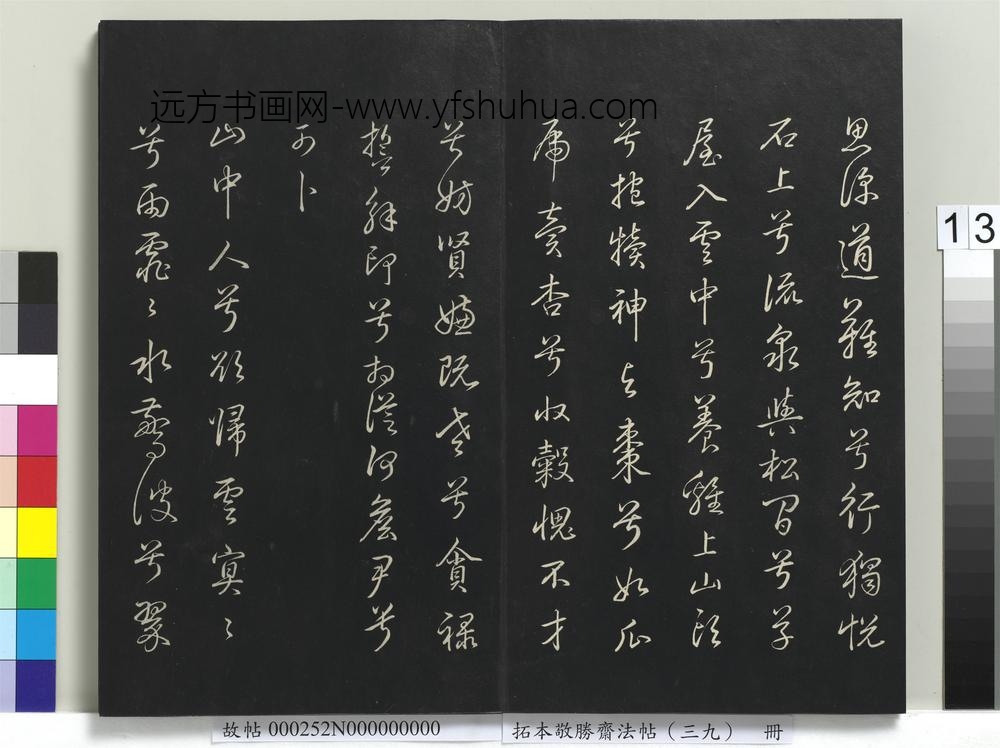 远方书画网-www.yfshuhua.com
思深道難知兮行獨悦
石上兮流泉與松間兮草
屋入雲中兮養雞上山頭
兮抱犢神與棗兮如瓜
虎賣杏兮收穀愧不才
兮妨賢嫌既老兮貪祿
誓解印兮相從何詹尹兮
可卜
山中人兮欲歸雲冥〻
兮雨霏〻水驚波兮翠
13
故帖 000252N000000000
拓本敬勝齋法帖（三九） 冊